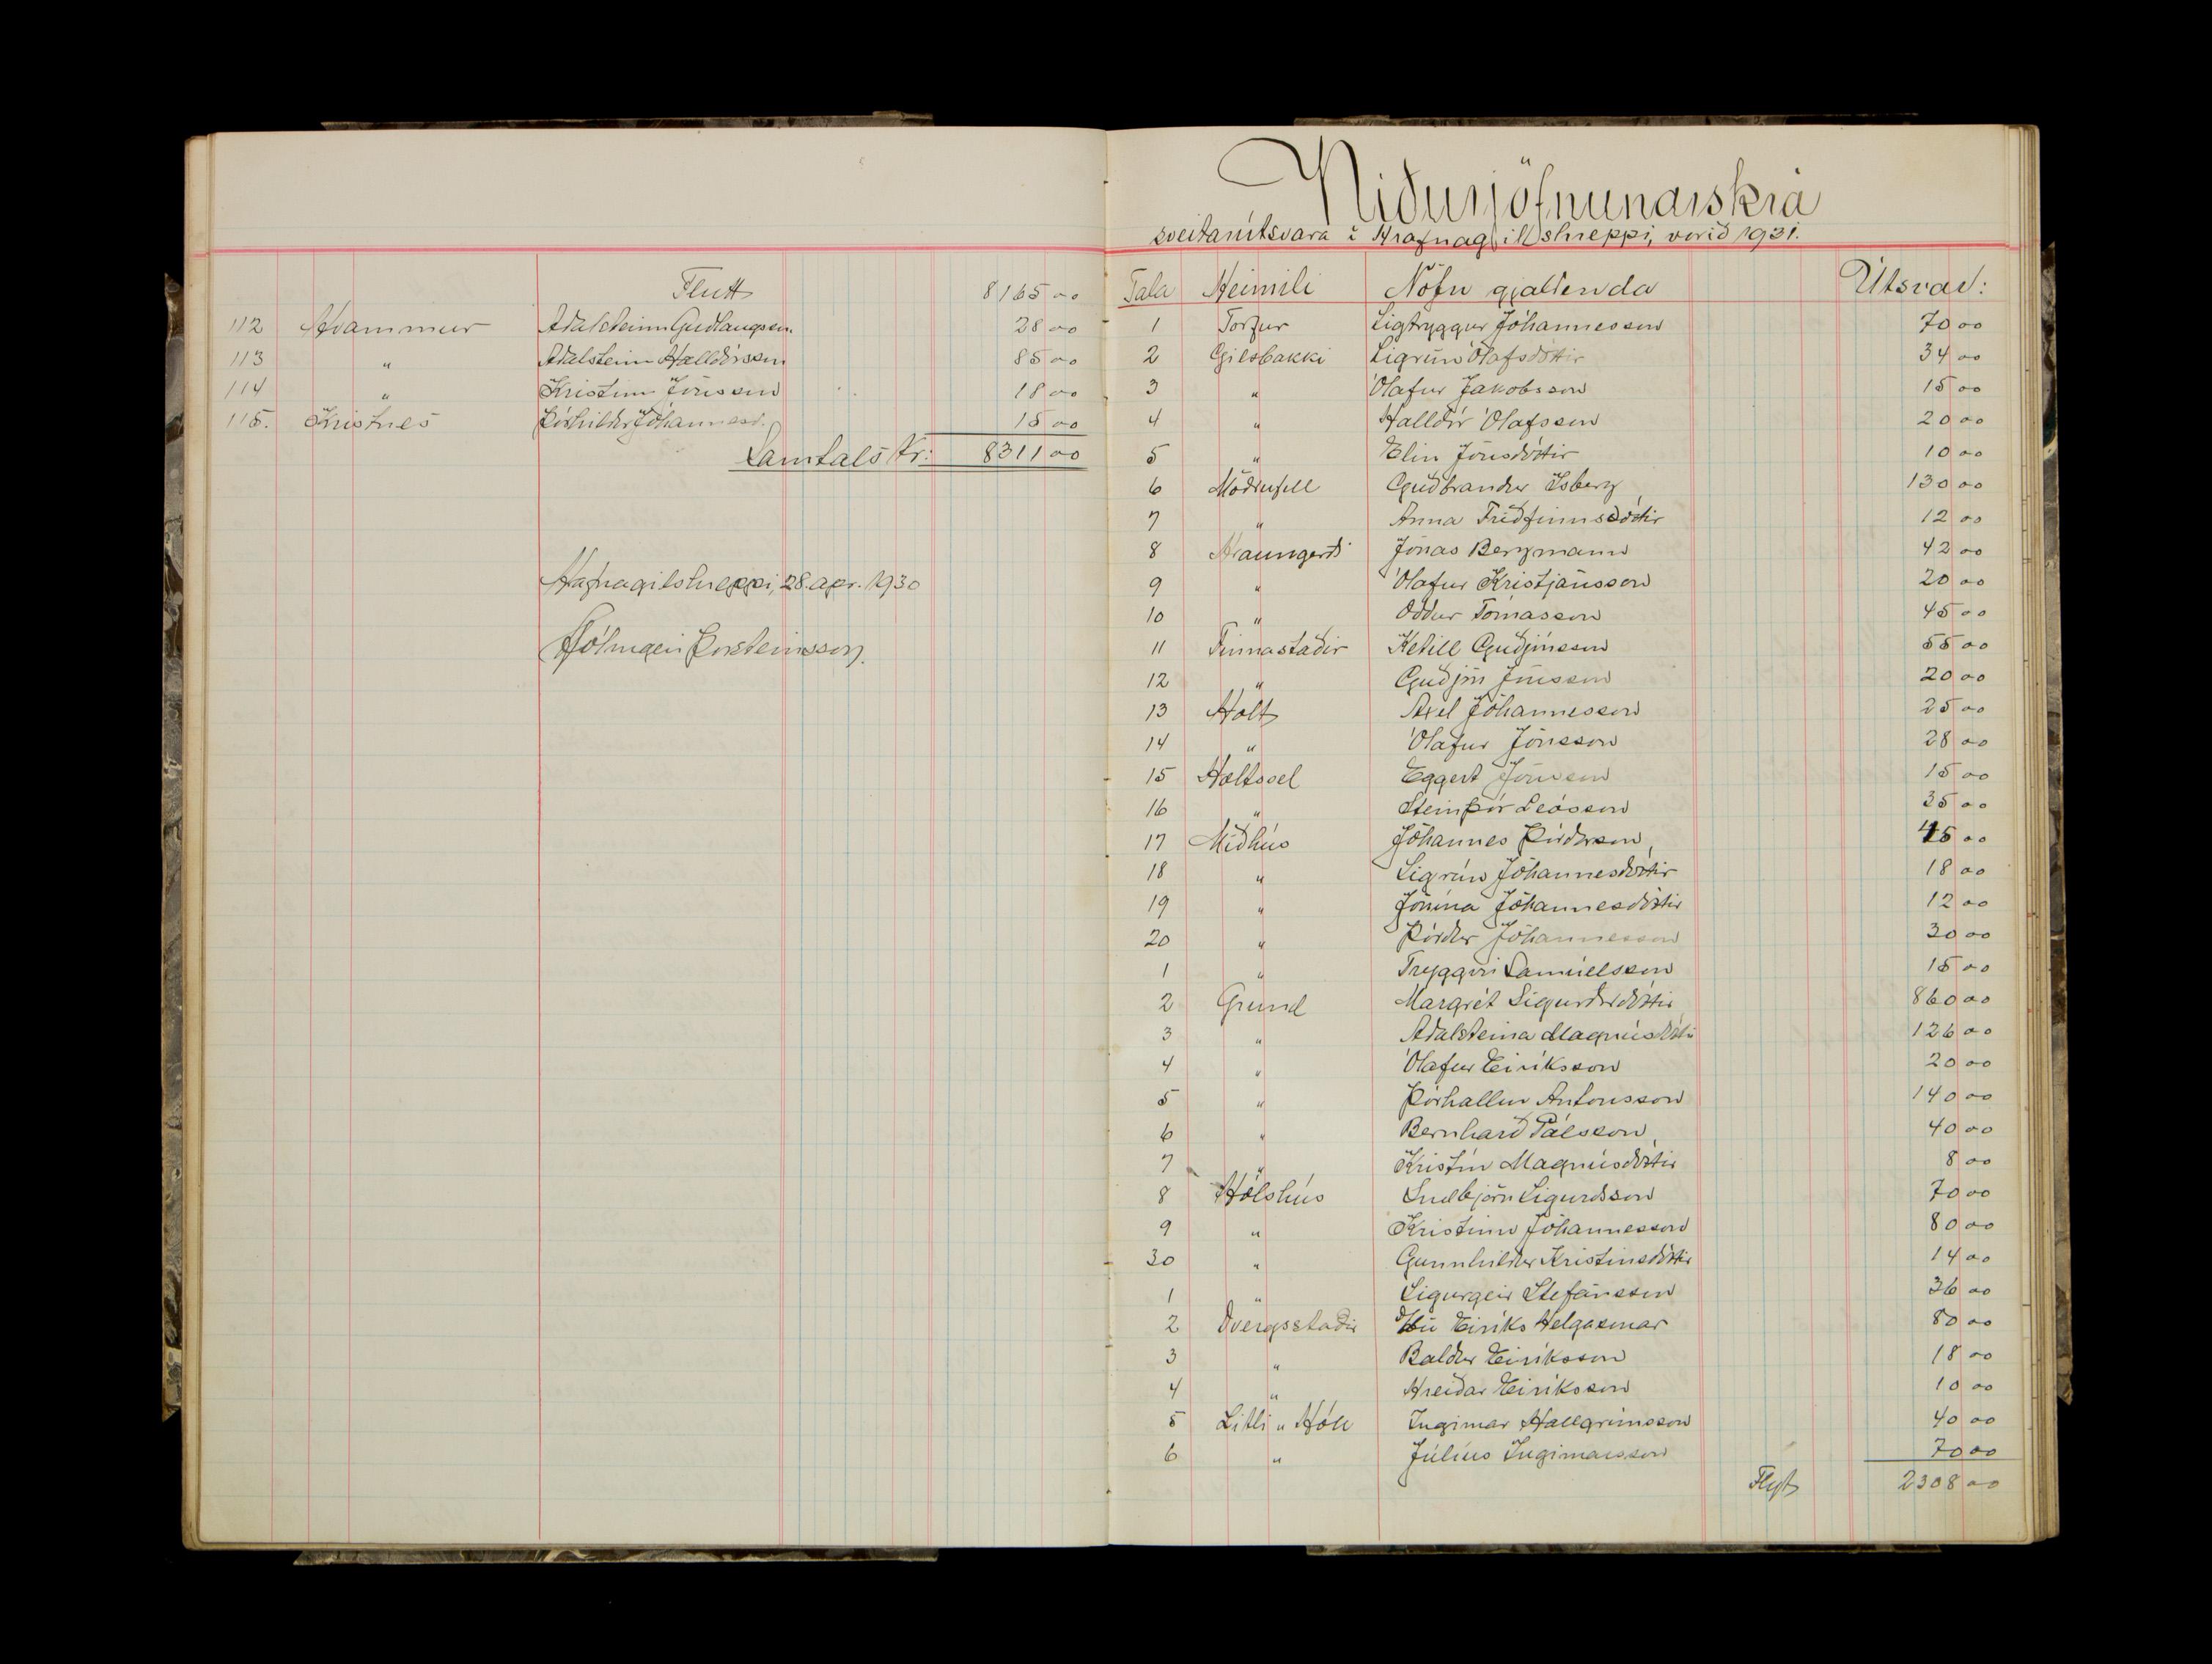 Flutt 8165 00
112 Hvammur Aðalsteinn Guðlaugsson 28 00
113 " Aðalsteinn Halldórsson 85 00
114 " Kristinn Jónsson 18 00
115. Kristnes Þórhildur Jóhannesd. 15 00
Samtals Kr: 8311 00
Hrafnagilshreppi, 28. apr. 1930
Hólmgeir Þorsteinsson.
Niðurjöfnunarskrá
sveitarútsvara í Hrafnagilshreppi, vorið 1931.
Tala Heimili Nöfn gjaldenda Útsvar:
1 Torfur Sigtryggur Jóhannesson 70 00
2 Gilsbakki Sigrún Ólafsdóttir 34 00
3 " Ólafur Jakobsson 15 00
4 " Halldór Ólafsson 20 00
5 " Elín Jónsdóttir 10 00
6 Möðrufell Guðbrandur Ísberg 130 00
7 " Anna Friðfinnsdóttir 12 00
8 Hraungerði Jónas Bergmann 42 00
9 " Ólafur Kristjánsson 20 00
10 " Oddur Tómasson 45 00
11 Finnastaðir Ketill Guðjónsson 55 00
12 " Guðjón Jónsson 20 00
13 Holt Axel Jóhannesson 25 00
14 " Ólafur Jónsson 28 00
15 Holtssel Eggert Jónsson 15 00
16 " Steinþór Leósson 35 00
17 Miðhús Jóhannes Þórðarson 45 00
18 " Sigrún Jóhannesdóttir 18 00
19 " Jónína Jóhannesdóttir 12 00
20 " Þórður Jóhannesson 30 00
1 " Tryggvi Samúelsson 15 00
2 Grund Margrét Sigurðardóttir 860 00
3 " Aðalsteina Magnúsdóttir 126 00
4 " Ólafur Eiríksson 20 00
5 " Þórhallur Antonsson 140 00
6 " Bernharð Pálsson 40 00
7 " Kristín Magnúsdóttir 8 00
8 Hólshús Snæbjörn Sigurðsson 70 00
9 " Kristinn Jóhannesson 80 00
30 " Gunnhildur Kristinsdóttir 14 00
1 " Sigurgeir Stefánsson 36 00
2 Dvergsstaðir Dbú Eiríks Helgasonar 80 00
3 " Baldur Eiríksson 18 00
4 " Hreiðar Eiríksson 10 00
5 Litli " Hóll Ingimar Hallgrímsson 40 00
6 " Júlíus Ingimarsson 70 00
Flyt 2308 00